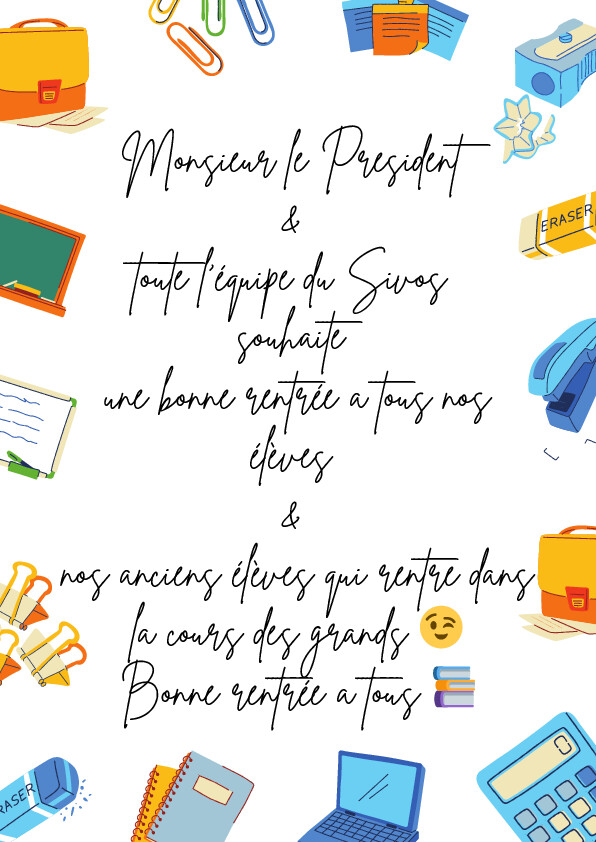 Monsieur le President
&
toute l'équipe du Sivos
souhaite
une bonne rentrée a tous nos
élèves
&
nos anciens élèves qui rentre dans
la cours des grands 😉
Bonne rentrée a tous 📚
ERASER
ERASER